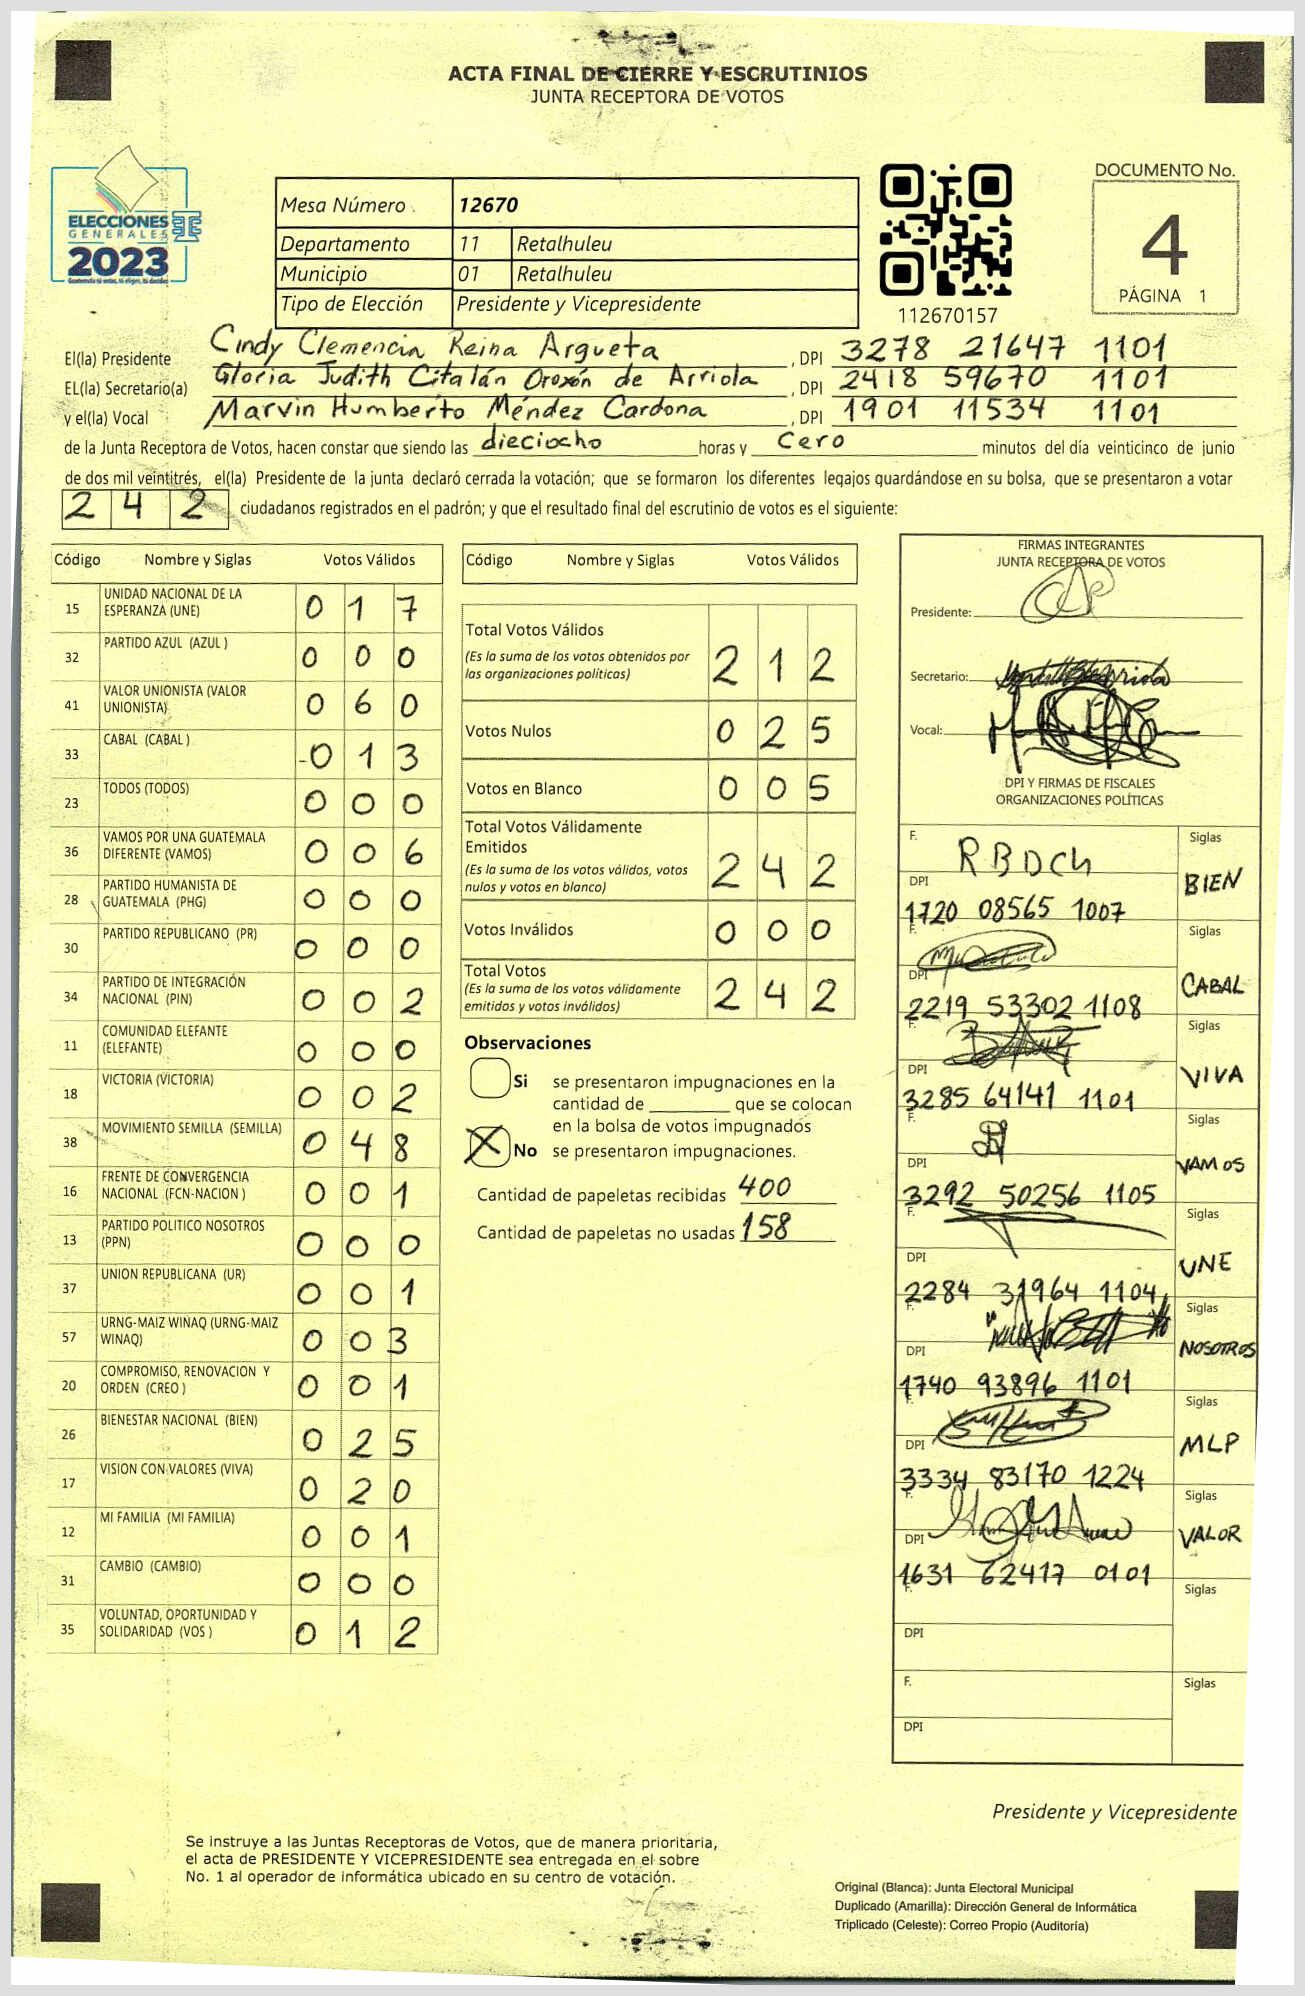 ACTA FINAL DE CIERRE Y ESCRUTINIOS
JUNTA RECEPTORA DE VOTOS
ELECCIONES
GENERALES
2023
Mesa Número 12670
Departamento 11 Retalhuleu
Municipio 01 Retalhuleu
Tipo de Elección Presidente y Vicepresidente
112670157
DOCUMENTO No.
4
PÁGINA 1
El(la) Presidente Cindy Clemencia Reina Argueta , DPI 3278 21647 1101
EL(la) Secretario(a) Gloria Judith Citalán Oroxón de Arriola , DPI 2418 59670 1101
y el(la) Vocal Marvin Humberto Méndez Cardona , DPI 1901 11534 1101
de la Junta Receptora de Votos, hacen constar que siendo las dieciocho horas y cero minutos del día veinticinco de junio
de dos mil veintitrés, el(la) Presidente de la junta declaró cerrada la votación; que se formaron los diferentes legajos guardándose en su bolsa, que se presentaron a votar
242 ciudadanos registrados en el padrón; y que el resultado final del escrutinio de votos es el siguiente:
Código Nombre y Siglas Votos Válidos
15 UNIDAD NACIONAL DE LA ESPERANZA (UNE) 0 1 7
32 PARTIDO AZUL (AZUL ) 0 0 0
41 VALOR UNIONISTA (VALOR UNIONISTA) 0 6 0
33 CABAL (CABAL ) 0 1 3
23 TODOS (TODOS) 0 0 0
36 VAMOS POR UNA GUATEMALA DIFERENTE (VAMOS) 0 0 6
28 PARTIDO HUMANISTA DE GUATEMALA (PHG) 0 0 0
30 PARTIDO REPUBLICANO (PR) 0 0 0
34 PARTIDO DE INTEGRACIÓN NACIONAL (PIN) 0 0 2
11 COMUNIDAD ELEFANTE (ELEFANTE) 0 0 0
18 VICTORIA (VICTORIA) 0 0 2
38 MOVIMIENTO SEMILLA (SEMILLA) 0 4 8
16 FRENTE DE CONVERGENCIA NACIONAL (FCN-NACION ) 0 0 1
13 PARTIDO POLITICO NOSOTROS (PPN) 0 0 0
37 UNION REPUBLICANA (UR) 0 0 1
57 URNG-MAIZ WINAQ (URNG-MAIZ WINAQ) 0 0 3
20 COMPROMISO, RENOVACION Y ORDEN (CREO ) 0 0 1
26 BIENESTAR NACIONAL (BIEN) 0 2 5
17 VISION CON VALORES (VIVA) 0 2 0
12 MI FAMILIA (MI FAMILIA) 0 0 1
31 CAMBIO (CAMBIO) 0 0 0
35 VOLUNTAD, OPORTUNIDAD Y SOLIDARIDAD (VOS ) 0 1 2
Código Nombre y Siglas Votos Válidos
Total Votos Válidos 2 1 2
(Es la suma de los votos obtenidos por
las organizaciones políticas)
Votos Nulos 0 2 5
Votos en Blanco 0 0 5
Total Votos Válidamente
Emitidos 2 4 2
(Es la suma de los votos válidos, votos
nulos y votos en blanco)
Votos Inválidos 0 0 0
Total Votos 2 4 2
(Es la suma de los votos válidamente
emitidos y votos inválidos)
Observaciones
Si se presentaron impugnaciones en la
cantidad de ________ que se colocan
en la bolsa de votos impugnados
X No se presentaron impugnaciones.
Cantidad de papeletas recibidas 400
Cantidad de papeletas no usadas 158
FIRMAS INTEGRANTES
JUNTA RECEPTORA DE VOTOS
Presidente:
Secretario:
Vocal:
DPI Y FIRMAS DE FISCALES
ORGANIZACIONES POLÍTICAS
F. RBDCh Siglas
DPI 1720 08565 1007 BIEN
F. Siglas
DPI 2219 53302 1108 CABAL
F. Siglas
DPI 3285 64141 1101 VIVA
F. Siglas
DPI 3292 50256 1105 VAMOS
F. Siglas
DPI 2284 31964 1104 UNE
F. Siglas
DPI 1740 93896 1101 NOSOTROS
F. Siglas
DPI 3334 83170 1224 MLP
F. Siglas
DPI 1631 62417 0101 VALOR
F. Siglas
DPI
F. Siglas
DPI
Presidente y Vicepresidente
Se instruye a las Juntas Receptoras de Votos, que de manera prioritaria,
el acta de PRESIDENTE Y VICEPRESIDENTE sea entregada en el sobre
No. 1 al operador de informática ubicado en su centro de votación.
Original (Blanca): Junta Electoral Municipal
Duplicado (Amarilla): Dirección General de Informática
Triplicado (Celeste): Correo Propio (Auditoría)